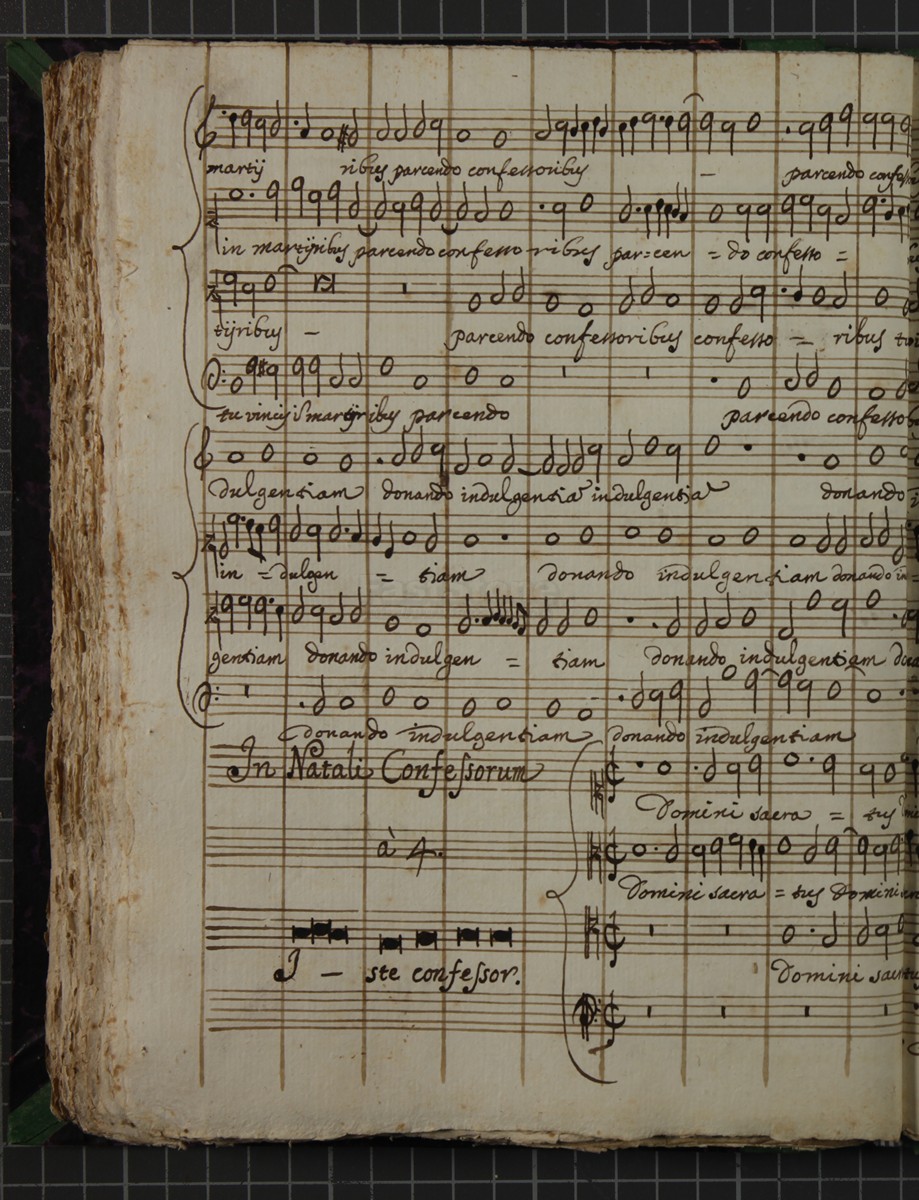 martij ribus parcendo confessoribus – parcendo
in martijribus parcendo confesso ribus par=cen = do confesso =
tijribus – parcendo confessoribus confesso = ribus
tu vincis martijribus parcendo parcendo confesso
dulgentiam donando indulgentia indulgentia donando
in = dulgen = tiam donando indulgentiam donando in=
gentiam donando indulgen = tiam donando indulgentiam
donando indulgentiam donando indulgentiam
In Natali Confessorum
Domini sacra = tus
à 4.
Domini sacra = tus Domini
I – ste confessor.
Domini